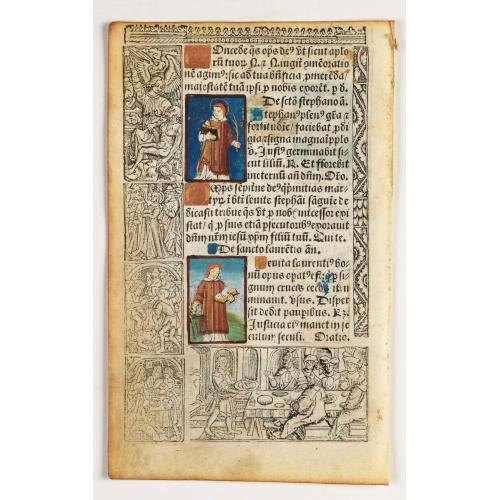 Oncede q̄s op̄s de⁹ vt sicut aplo
rū tuoꝝ N. ꝛ N. iugit ̄memoration
nē agim⁹: sic ad tua bn̄ficia ꝓmerēda/
maiestatē tuā ipsi ꝓ nobis exorēt. p d.
De scto stephano añ.
Stephan⁹ plen⁹ gr̄a ꝛ
fortitudie/ faciebat ꝓdi
gia ꝛ signa magna i pplo
v̄. Just⁹ germinabit si
cut liliū. R. Et florebit
in eternū an̄ dn̄m. Or̄o.
Omps sēpitne de⁹ q pmitias mar
tyꝝ i bt̄i leuite stephāi sāguie de
dicasti tribue q̄s vt ꝓ nob̄ intcessor exi
stat/ q̄ ꝓ suis etiā ꝑsecutorib⁹ exorauit
dn̄m nem̄ iesū xp̄m filiū tuū. Qui te.
De sancto laurentio añ.
Leuita laurenti⁹ bo
nū opus opat⁹ est: q̄ ꝑ si
gnum crucis cecos illu
minauit. vsus. Disper
sit dedit pauperibus. R.
Justicia ei⁹ manet in se
culum seculi. Oratio.